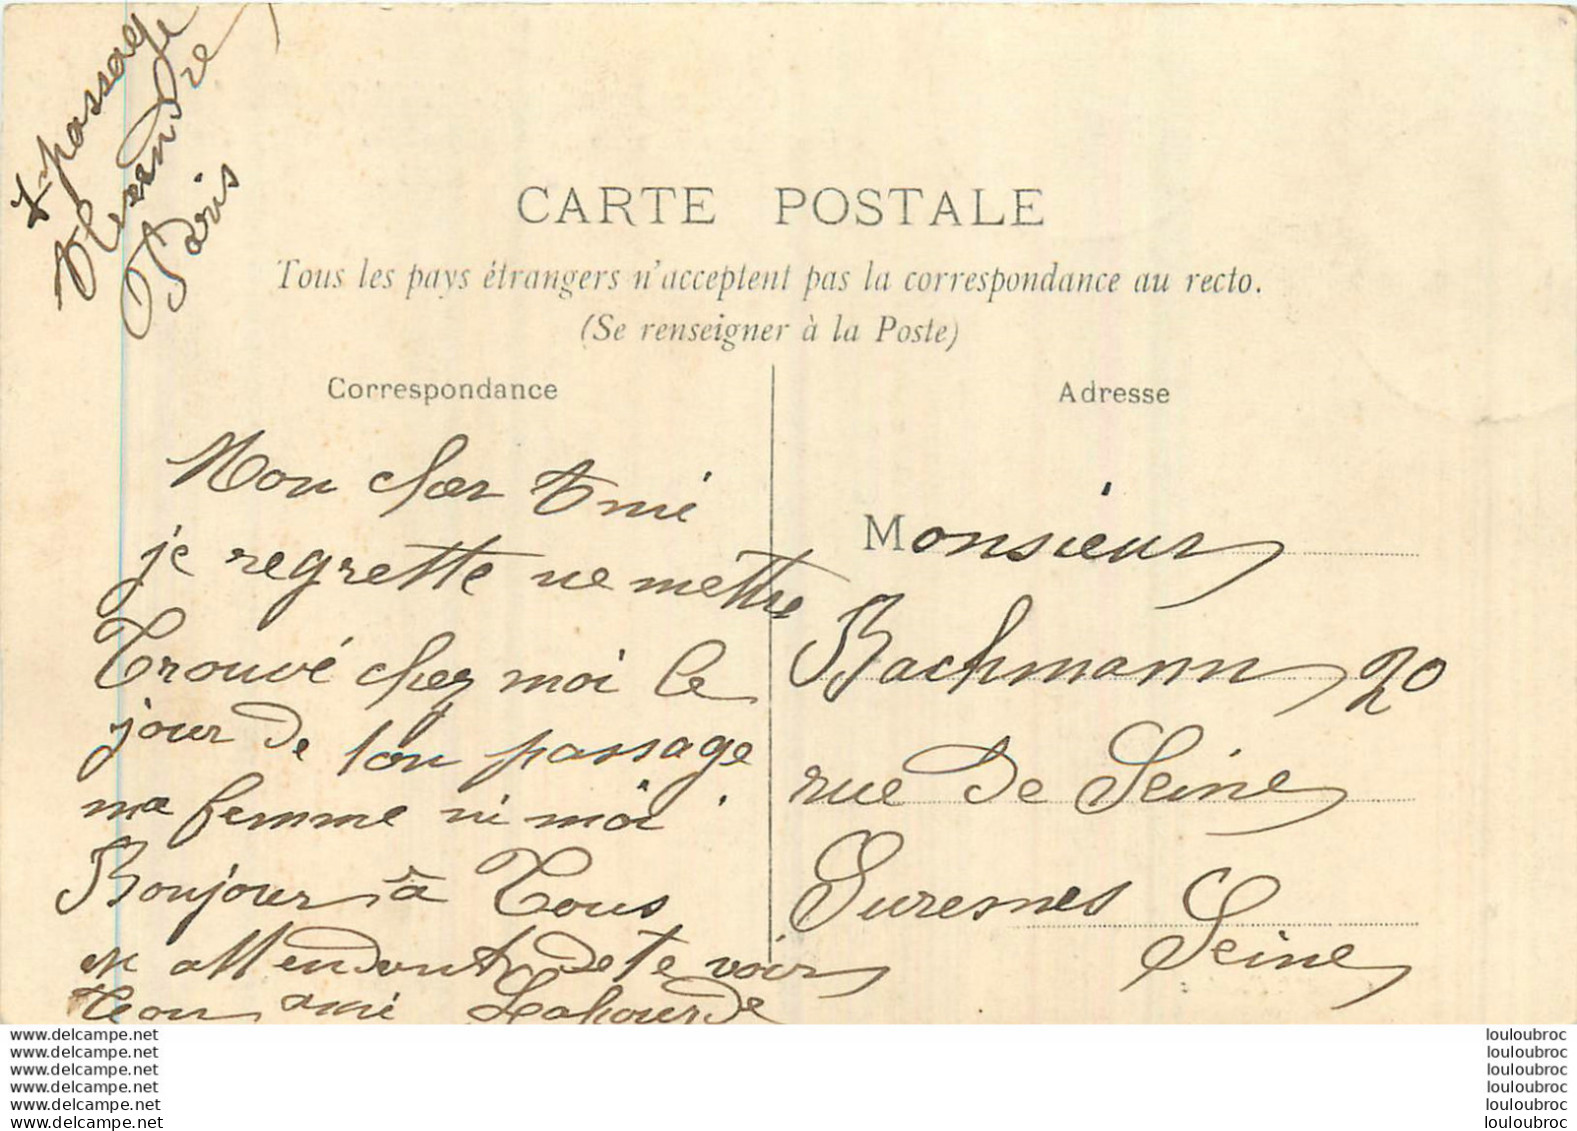 7 passage
Alexandre
Paris
CARTE POSTALE
Tous les pays étrangers n'acceptent pas la correspondance au recto.
(Se renseigner à la Poste)
Correspondance
Adresse
Mon cher Ami
je regrette ne mettre
Trouvé chez moi le
jour de ton passage
ma femme ni moi.
Bonjour à Tous
en attendant de te voir
Ton ami
Monsieur
Bachmann 20
rue de Seine
Suresnes Seine
Seine
www.delcampe.net
www.delcampe.net
www.delcampe.net
www.delcampe.net
www.delcampe.net
www.delcampe.net
louloubroc
louloubroc
louloubroc
louloubroc
louloubroc
louloubroc